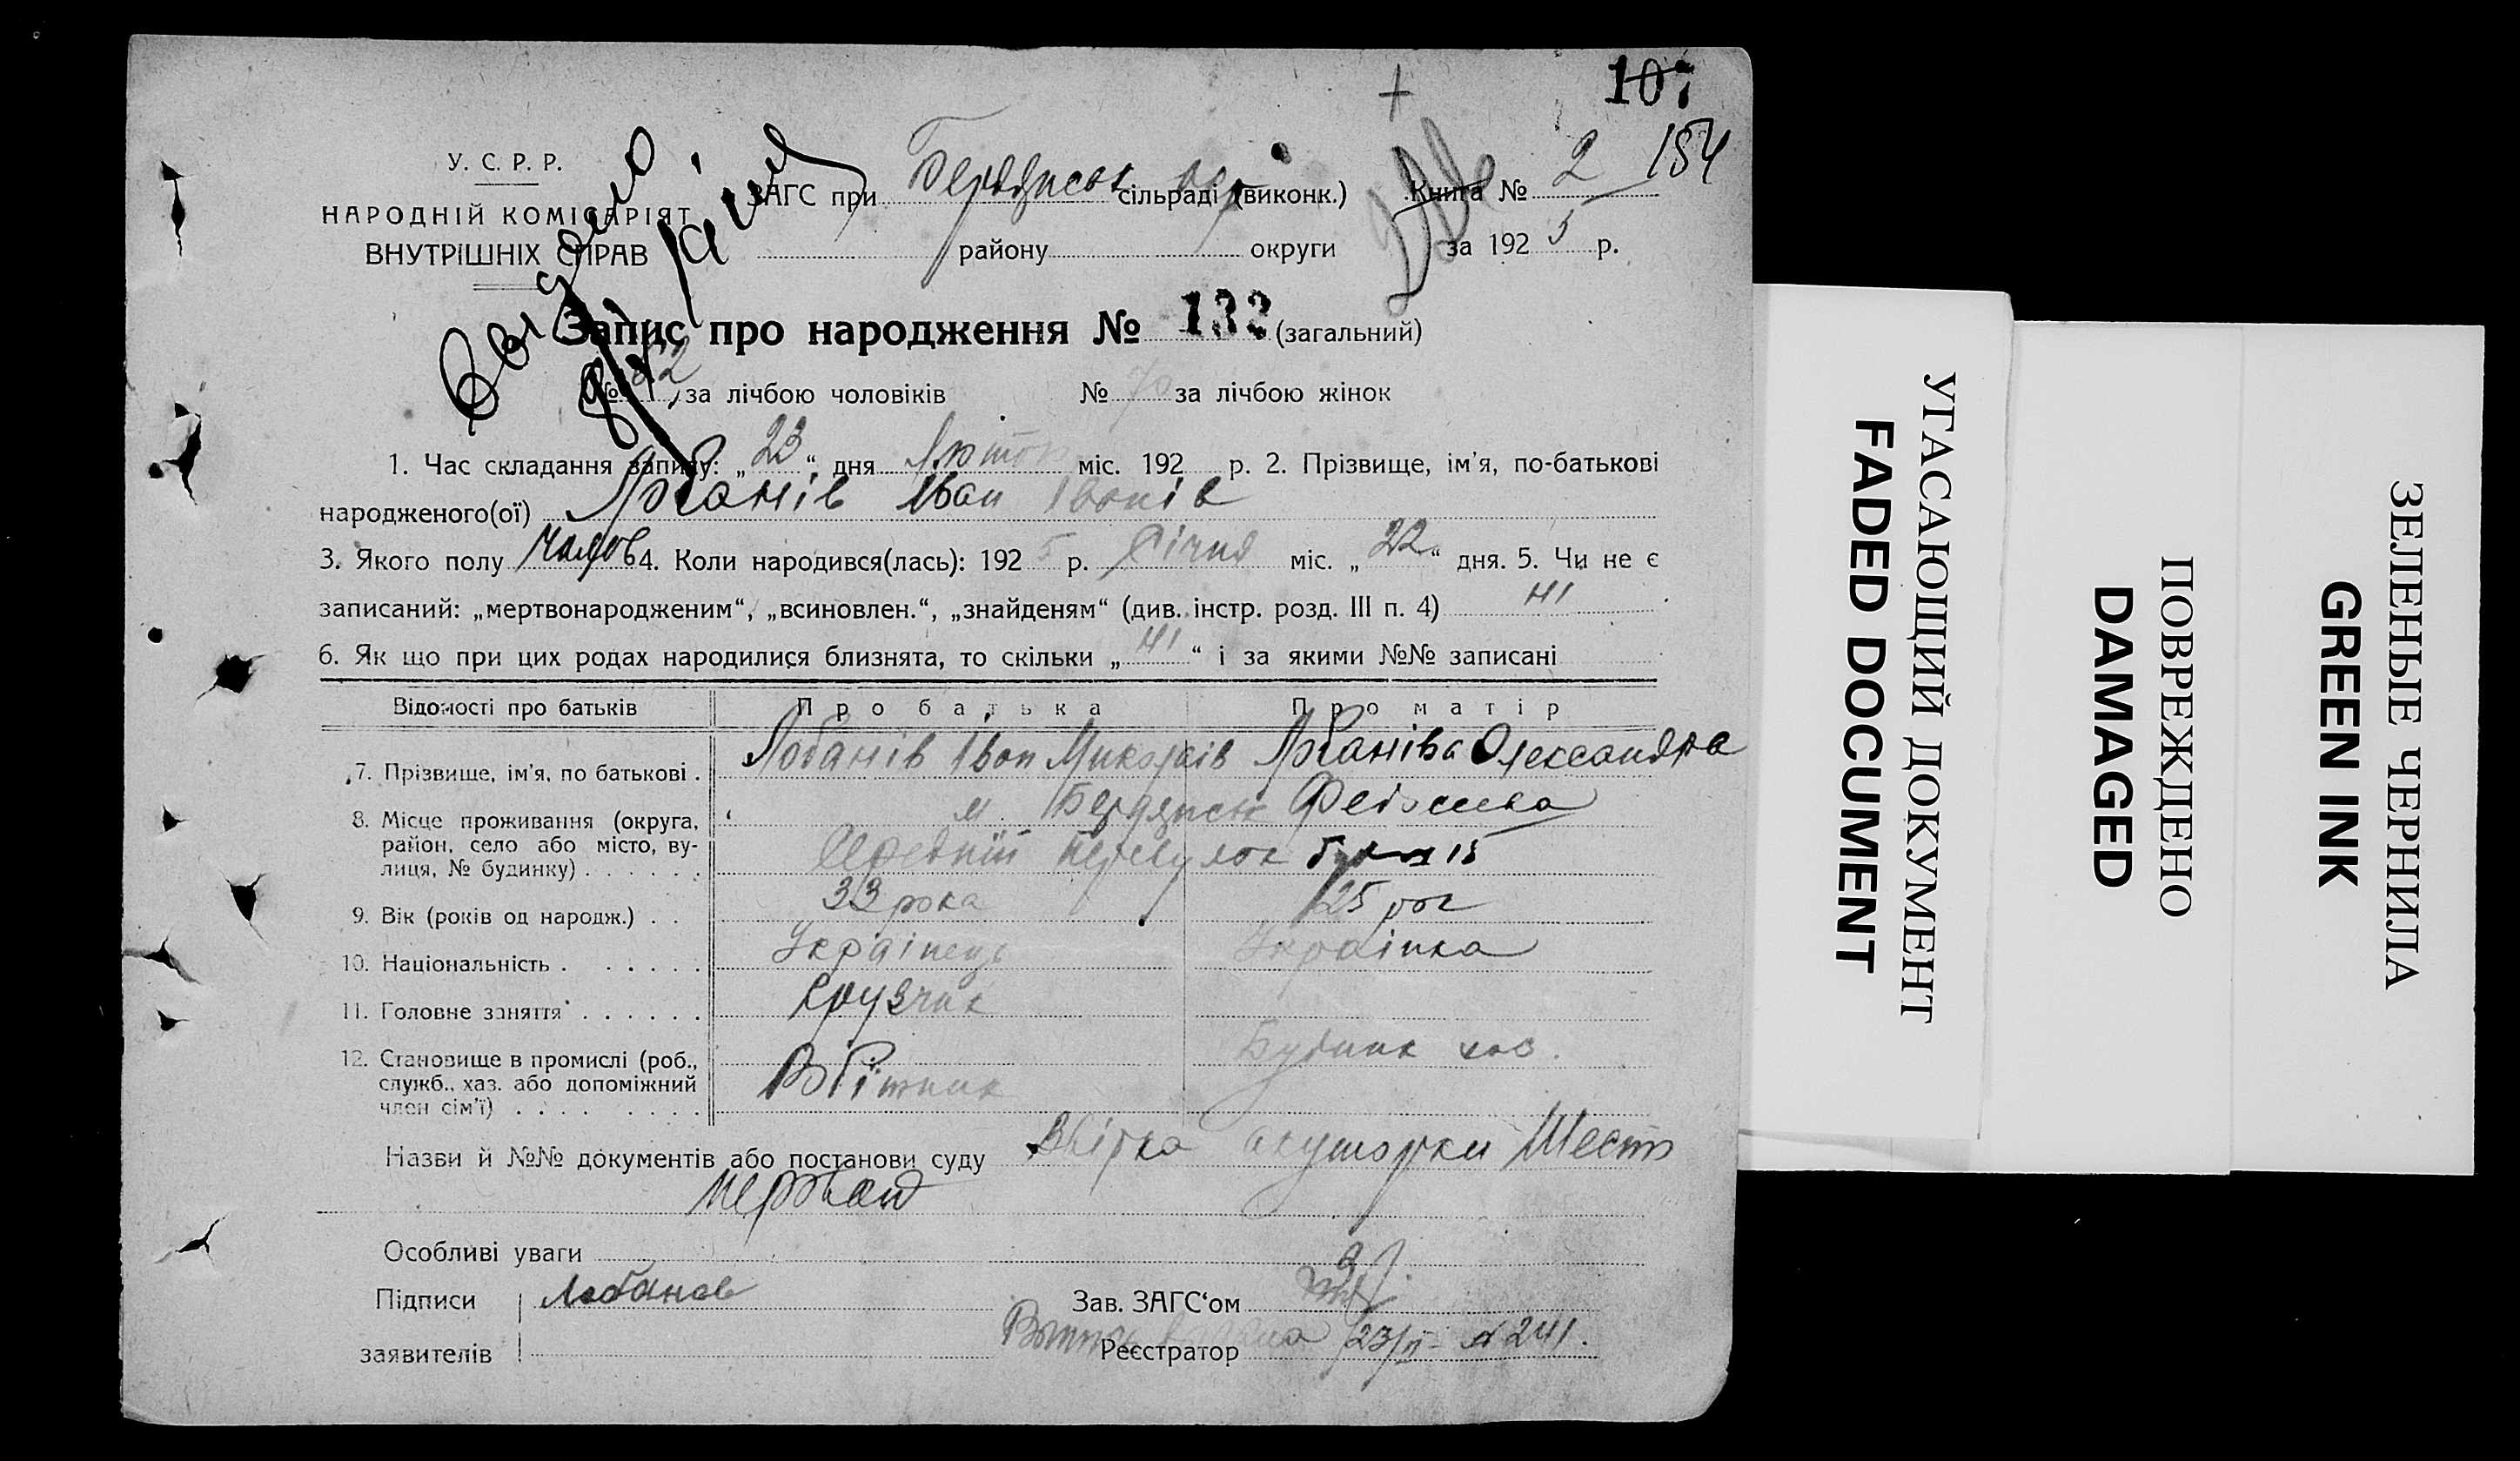 107
154
У. С. Р. Р.
НАРОДНІЙ КОМІСАРІЯТ
ВНУТРІШНІХ СПРАВ
ЗАГС при Бердянськ сільраді (виконк.) Книга № 2
району округи за 1925 р.
Запис про народження № 132 (загальний)
№ 62 за лічбою чоловіків № 70 за лічбою жінок
1. Час складання запису: „23“ дня Лютого міс. 192 р. 2. Прізвище, ім'я, по-батькові
народженого(ої) Лобанів Іван Іванів
3. Якого полу чолов 4. Коли народився(лась): 1925 р. Січня міс. „22“ дня. 5. Чи не є
записаний: „мертвонародженим“, „всиновлен.“, „знайденям“ (див. інстр. розд. III п. 4) ні
6. Як що при цих родах народилися близнята, то скільки „ні“ і за якими №№ записані
Відомості про батьків Про батька Про матір
7. Прізвище, ім'я, по батькові . Лобанів Іван Миколаїв Лобаніва Олександра
8. Місце проживання (округа, м. Бердянськ
район, село або місто, ву- Середній переулок 15
лиця, № будинку) . . . . . .
9. Вік (років од народж.) . . 33 рока 25 рок
10. Національність . . . . . . Українець Українка
11. Головне заняття . . . . . . Грузчик
12. Становище в промислі (роб., Будинк хоз.
служб., хаз. або допоміжний Робітник
член сім'ї) . . . . . . . .
Назви й №№ документів або постанови суду акушорки Шест
Особливі уваги
Підписи Лобанов Зав. ЗАГС‘ом
заявителів Реєстратор 23/II - № 241.
УГАСАЮЩИЙ ДОКУМЕНТ
FADED DOCUMENT
ПОВРЕЖДЕНО
DAMAGED
ЗЕЛЕНЫЕ ЧЕРНИЛА
GREEN INK